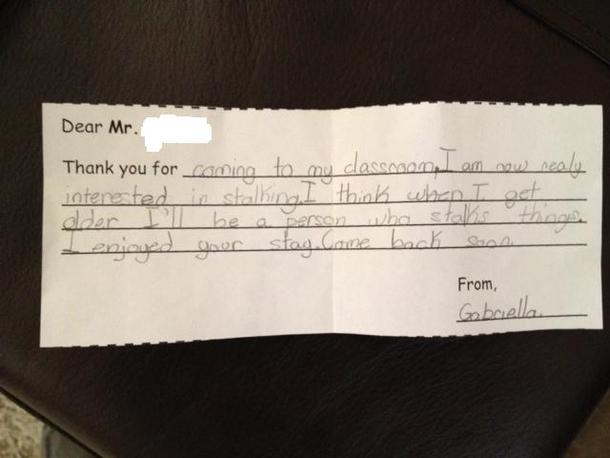 Dear Mr.
Thank you for coming to my classroom, I am now realy
interested in stalking. I think when I get
older I'll be a person who stalks things.
I enjoyed your stay. Come back soon.
From,
Gabriella.